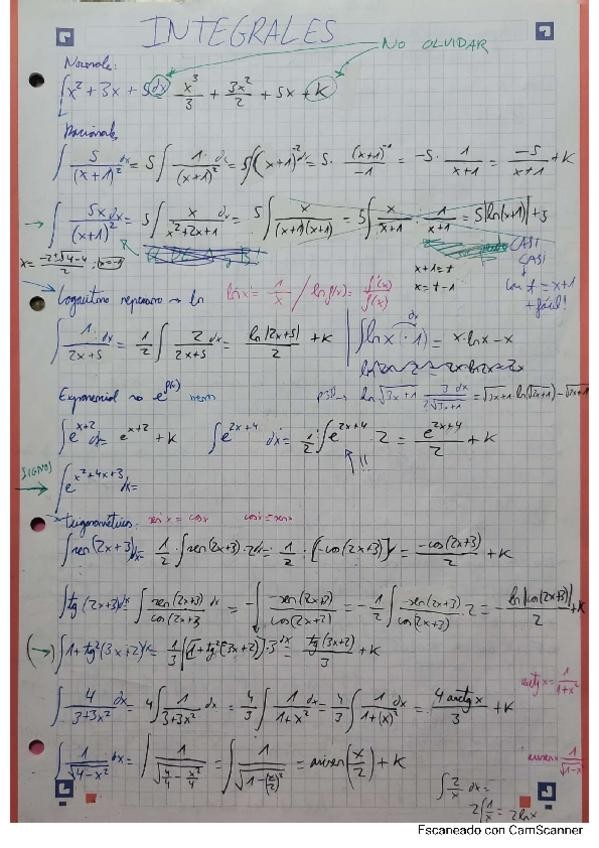 INTEGRALES
NO OLVIDAR
Normales:
∫ x² + 3x + 5 dx x³/3 + 3x²/2 + 5x + K
Racionales
∫ 5/(x+1)² dx = 5 ∫ 1/(x+1)² dx = 5∫(x+1)⁻² dx = 5 · (x+1)⁻¹/-1 = -5 · 1/(x+1) = -5/(x+1) + K
→ ∫ 5x dx/(x+1)² = 5 ∫ x/(x²+2x+1) dx = 5 ∫ x/((x+1)(x+1)) = 5∫ x/(x+1) · 1/(x+1) = 5|ln(x+1)| + 5
CASI
CASI
x+1=t
x=t-1
t = x+1
+ fácil!
Logaritmo neperiano → ln lnx' = 1/x / ln f(x) = f'(x)/f(x)
∫ 1/(2x+5) dx = 1/2 ∫ 2/(2x+5) dx = ln|2x+5|/2 + K ∫(lnx · 1) dx = x·lnx - x
Exponencial no
∫e^(x+2) dx = e^(x+2) + K ∫e^(2x+4) dx = 1/2 ∫e^(2x+4) · 2 = e^(2x+4)/2 + K
!!
SIGNOS
→ ∫e^(x²+4x+3) dx =
Trigonométricos: sen'x = cosx cos'x = senx
∫sen(2x+3) dx = 1/2 · ∫sen(2x+3) · 2dx = 1/2 · [-cos(2x+3)] = -cos(2x+3)/2 + K
∫tg(2x+3) dx = ∫ sen(2x+3)/cos(2x+3) dx = -∫ -sen(2x+3)/cos(2x+2) = -1/2 ∫ -sen(2x+3)/cos(2x+3) · 2 = -ln|cos(2x+3)|/2 + K
(→) ∫1+tg²(3x+2) dx = 1/3 ∫[1+tg²(3x+2)]·3 dx = tg(3x+2)/3 + K
arctg x = 1/(1+x²)
∫ 4/(3+3x²) dx = 4∫ 1/(3+3x²) dx = 4/3 ∫ 1/(1+x²) dx = 4/3 ∫ 1/(1+(x)²) dx = 4 arctg x/3 + K
∫ 1/√(4-x²) dx = ∫ 1/√(4/4 - x²/4) = ∫ 1/√(1-(x/2)²) = arcsen(x/2) + K
arcsen x = 1/√(1-x²)
∫ 2/x dx =
2∫ 1/x = 2lnx
Escaneado con CamScanner